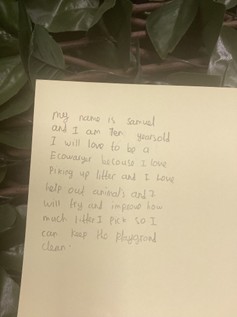 my name is samuel
and I am Ten yearsold
I will love to be a
Ecowarrior because I love
Piking up litter and I love
help out animals and I
will try and improve how
much litter I pick so I
can keep the playground
clean.